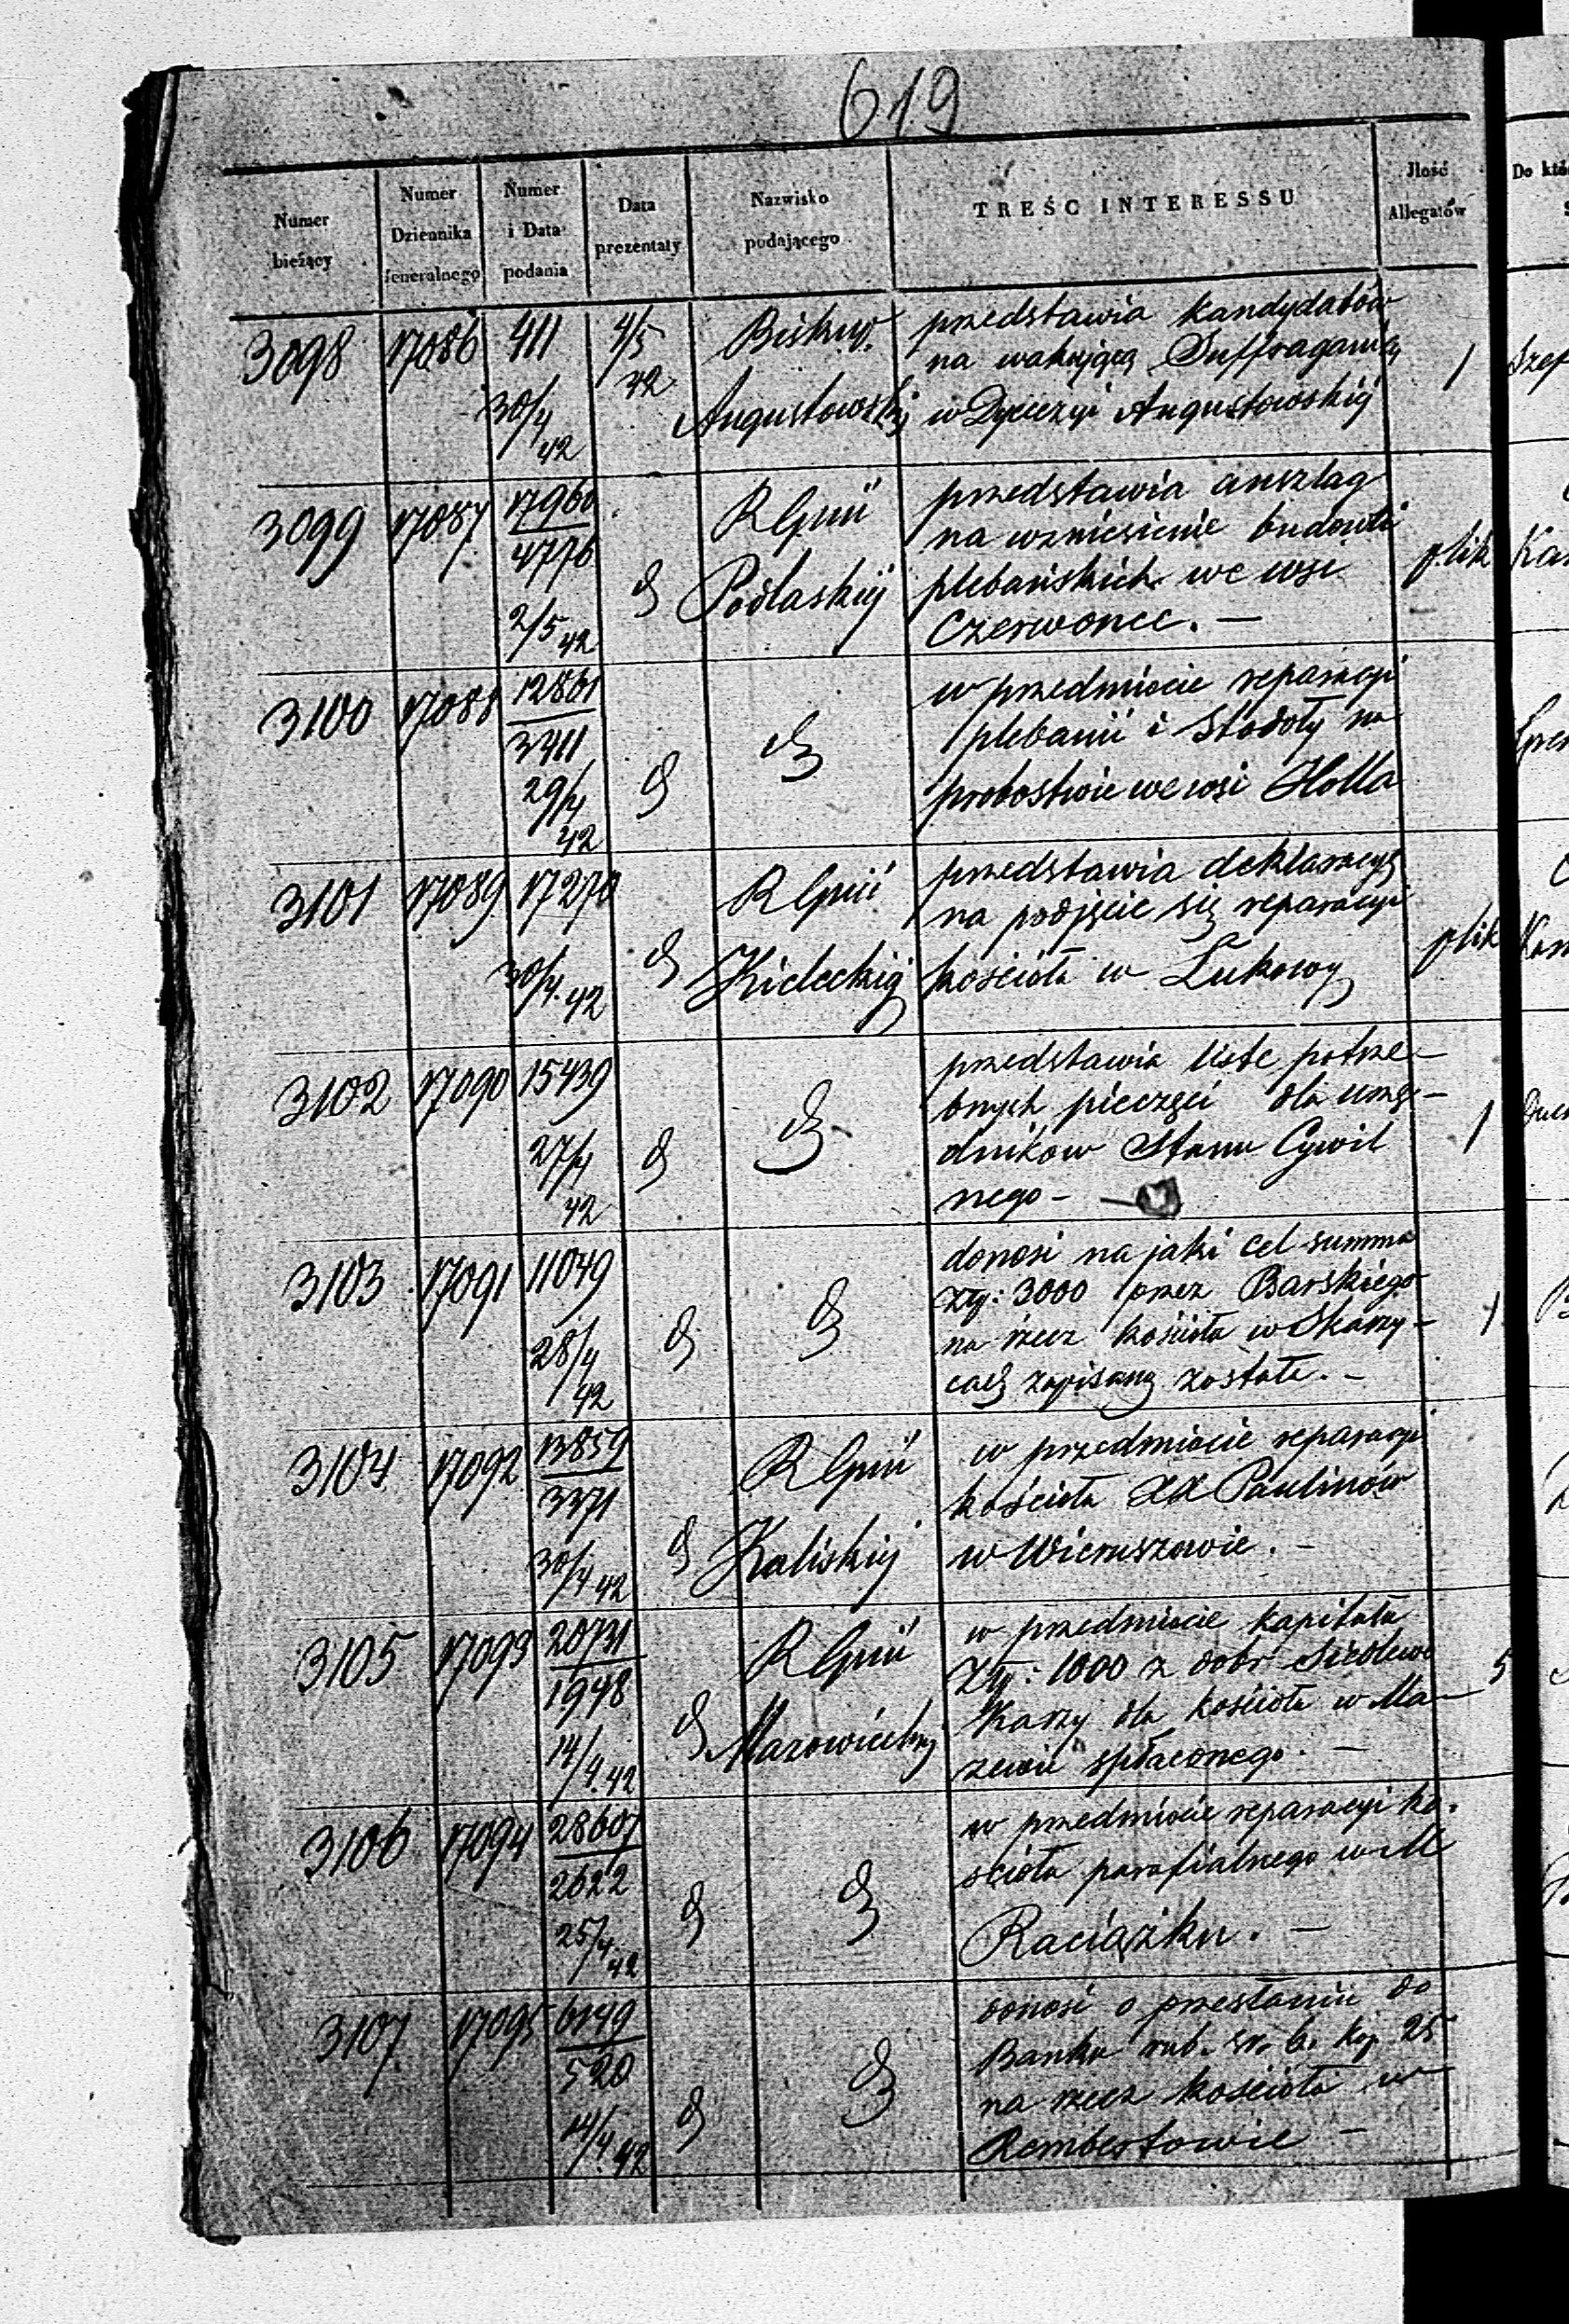 619
Numer bieżący | Numer Dziennika Jeneralnego | Numer i Data podania | Data prezentaty | Nazwisko podającego | TREŚC INTERESSU | Jlość Allegatów | Do któ
3098 | 17086 | 411 | 4/5 | Biskup. | przedstawia kandydatów
42 | na wakującą Suffraganią | 1 | Szef
30/4 42 | Augustowskij | w Dyecezyi Augustowskiej
3099 | 17087 | 17960 | RGpnii | przedstawia anszlag
4776 | na wzniesienie budowli
Podlaskiej | plebańskich we wsi | plik | Kan
2/5 42 | Czerwonce. —
3100 | 17088 | 12861 | w przedmiocie reparacyi
3411 | plebanii i Stodoły na
29/4 42 | probostwie we wsi Holla
3101 | 17089 | 17270 | RGpnii | przedstawia deklaracyę
na podjęcie się reparacyi | plik
30/4. 42 | Kieleckiej | kościoła w Łukowy
3102 | 17090 | 15439 | przedstawia liste potrze-
bnych pieczęci dla urzę-
27/4 | dników Stanu Cywil | 1
42 | nego -
3103 | 17091 | 11049 | donosi na jaki cel summa
złp: 3000 przez Barskiego
28/4 | na rzecz kościoła w Skarzy- | 1
42 | zapisaną została. -
3104 | 17092 | 13859 | RGpnii | w przedmiocie reparacyi
3371 | kościoła XX Paulinów
30/4 42 | Kaliskiej | w Wieruszowie. -
3105 | 17093 | 20731 | RGpnii | w przedmiocie kapitału
1948 | Złp: 1000 z dobr | 5
Mazowieckiej | dla kościoła w Ma-
14/4. 42 | zewie spłaconego. —
3106 | 17094 | 28607 | w przedmiocie reparacyi ko-
2622 | ścioła parafialnego w M
25/4. 42 | Raciążku. —
3107 | 17095 | 6149 | donosi o przesłaniu do
520 | Banku rub. sr. 6. kop 25
na rzecz kościoła w
14/4. 42 | Rembertowie —